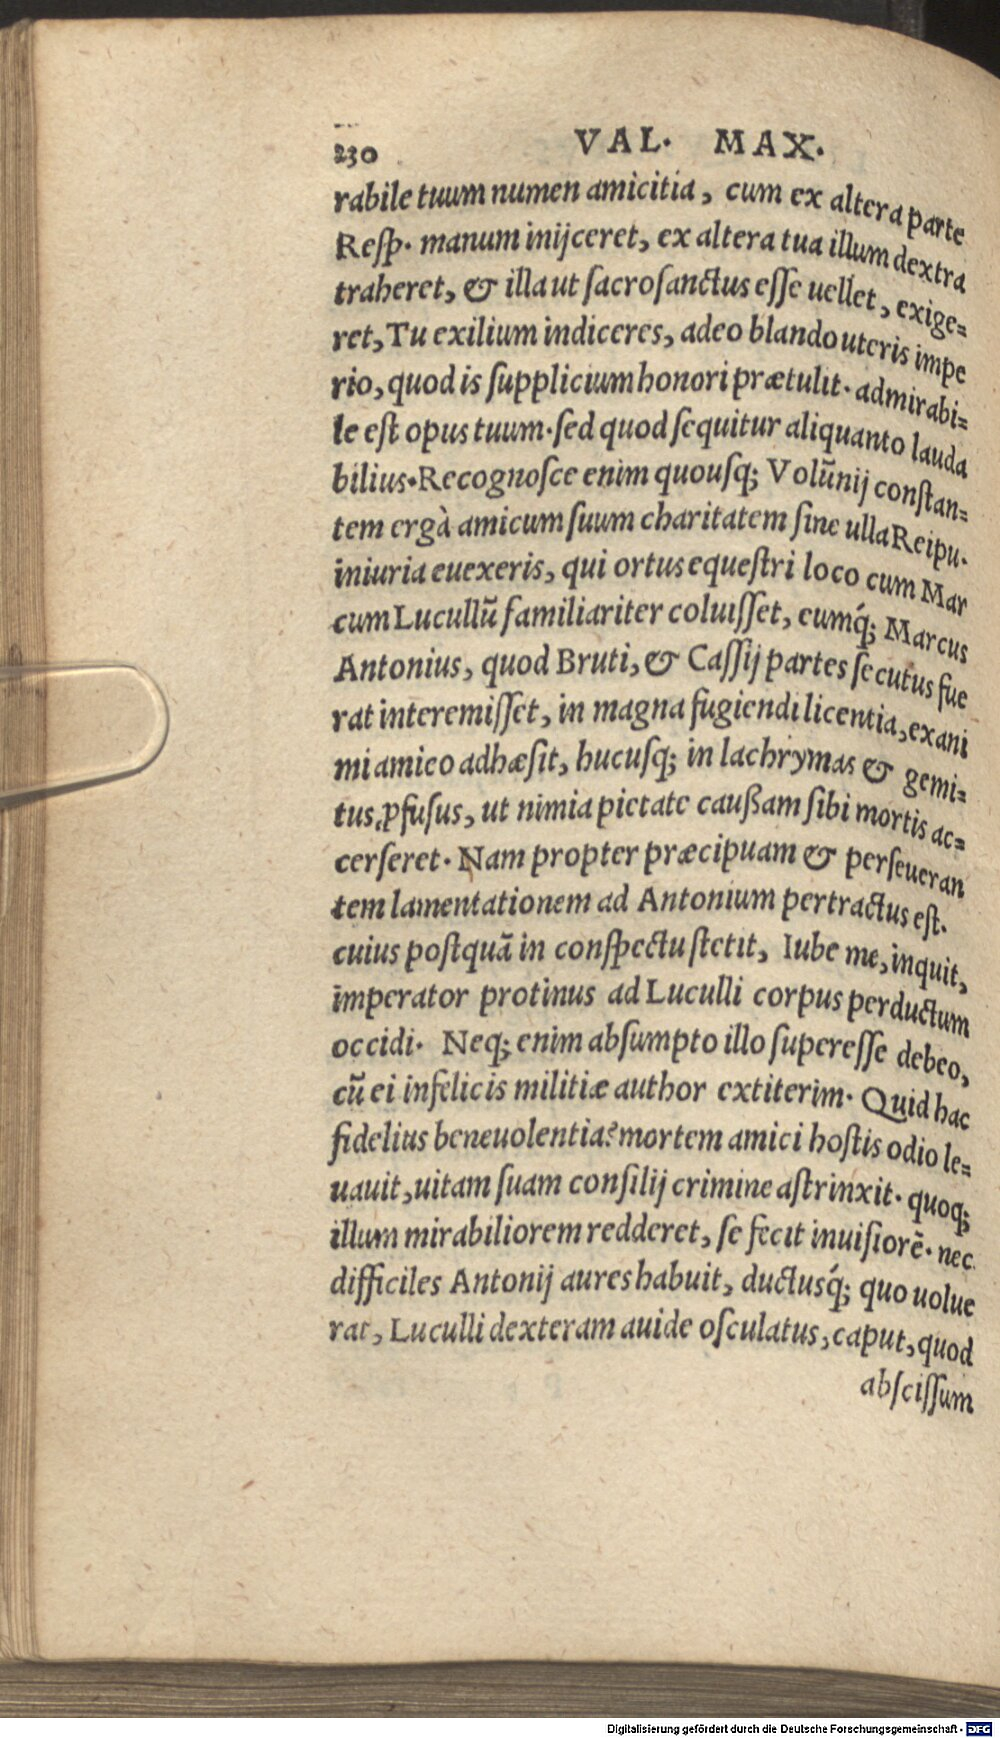 230 VAL. MAX.
rabile tuum numen amicitia, cum ex altera parte
Resp. manum inijceret, ex altera tua illum dextra
traheret, & illa ut sacrosanctus esse uellet, exige=
ret, Tu exilium indiceres, adeo blando uteris impe
rio, quod is supplicium honori prætulit. admirabi=
le est opus tuum. sed quod sequitur aliquanto lauda
bilius. Recognosce enim quousq; Volũnij constan=
tem ergà amicum suum charitatem sine ulla Reipu.
iniuria euexeris, qui ortus equestri loco cum Mar
cum Lucullũ familiariter coluisset, eumq́; Marcus
Antonius, quod Bruti, & Cassij partes secutus fue
rat interemisset, in magna fugiendi licentia, exani
mi amico adhæsit, hucusq; in lachrymas & gemi=
tus ꝓfusus, ut nimia pietate caußam sibi mortis ac=
cerseret. Nam propter præcipuam & perseueran
tem lamentationem ad Antonium pertractus est.
cuius postquã in conspectu stetit, Iube me, inquit,
imperator protinus ad Luculli corpus perductum
occidi. Neq; enim absumpto illo superesse debeo,
cũ ei infelicis militiæ author extiterim. Quid hac
fidelius beneuolentia? mortem amici hostis odio le=
uauit, uitam suam consilij crimine astrinxit. quoq;
illum mirabiliorem redderet, se fecit inuisiorẽ. nec
difficiles Antonij aures habuit, ductusq́; quo uolue
rat, Luculli dexteram auide osculatus, caput, quod
abscissum
Digitalisierung gefördert durch die Deutsche Forschungsgemeinschaft - DFG